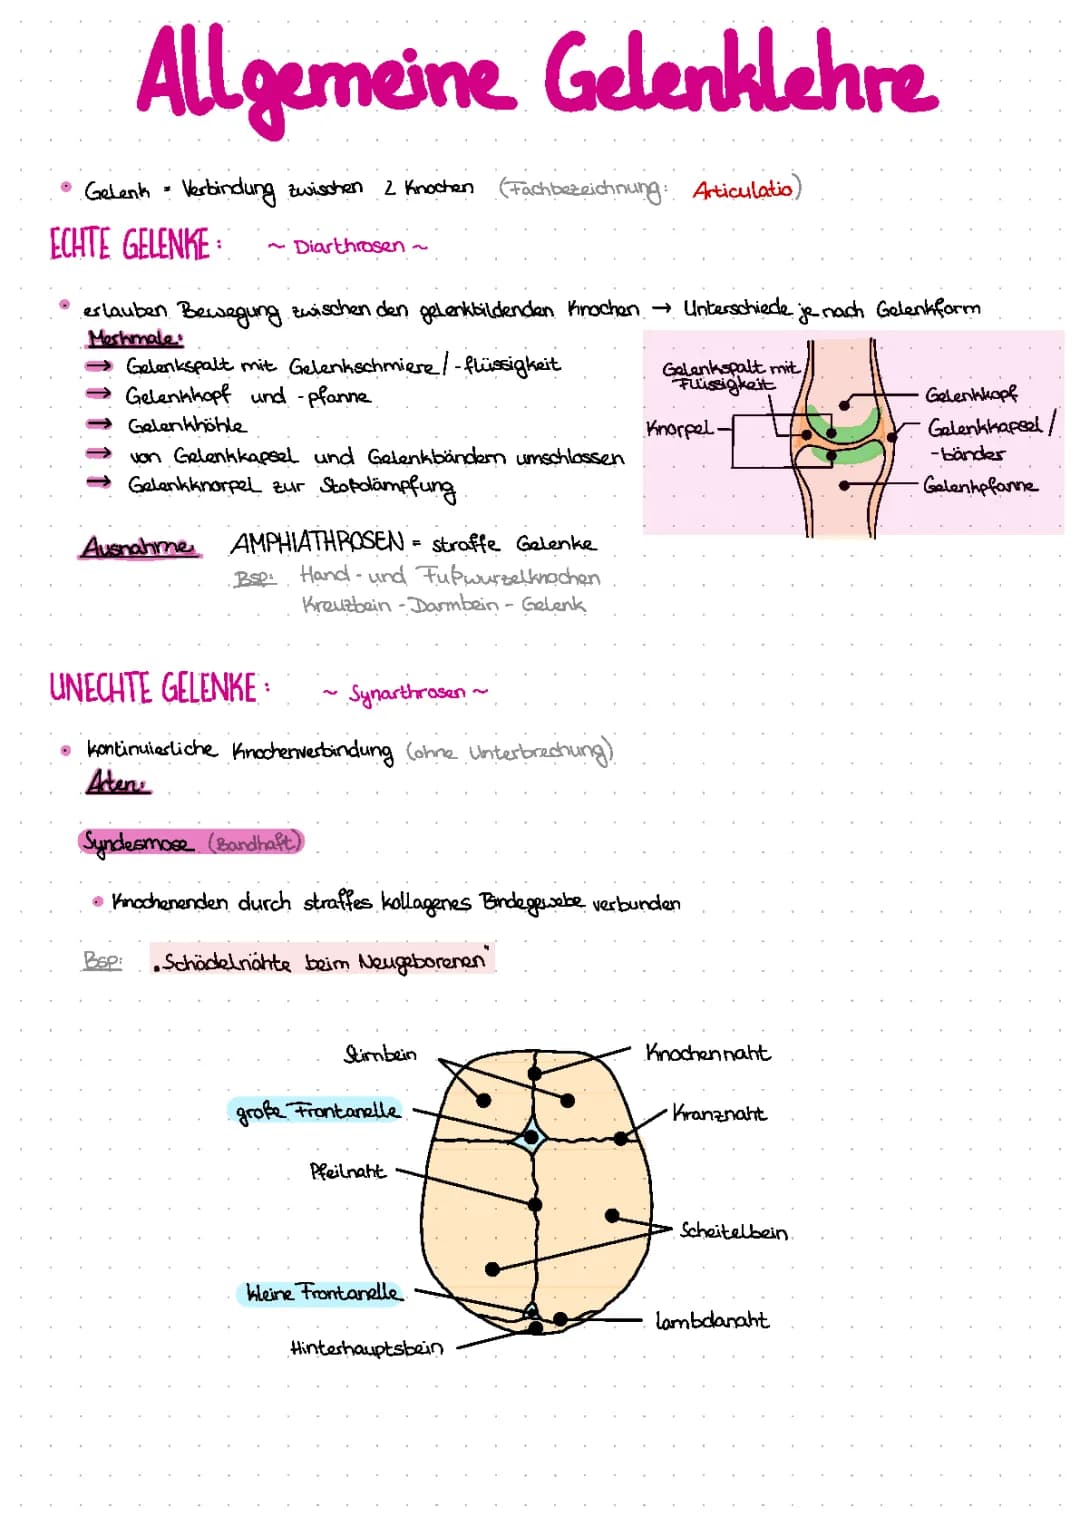 Allgemeine Gelenklehre
Gelenk = Verbindung zwischen 2 Knochen (Fachbezeichnung: Articulatio)
ECHTE GELENKE: ~ Diarthrosen ~
erlauben Bewegung zwischen den gelenkbildenden Knochen → Unterschiede je nach Gelenkform
Merkmale:
→ Gelenkspalt mit Gelenkschmiere/-flüssigkeit
→ Gelenkkopf und -pfanne
→ Gelenkhöhle
→ von Gelenkkapsel und Gelenkbändern umschlossen
→ Gelenkknorpel zur Stoßdämpfung
Gelenkspalt mit
Flüssigkeit
Knorpel
Gelenkkopf
Gelenkkapsel/
-bänder
Gelenkpfanne
Ausnahme AMPHIATHROSEN = straffe Gelenke
Bsp: Hand- und Fußwurzelknochen
Kreuzbein-Darmbein-Gelenk
UNECHTE GELENKE: ~ Synarthrosen ~
kontinuierliche Knochenverbindung (ohne Unterbrechung)
Arten:
Syndesmose (Bandhaft)
Knochenenden durch straffes kollagenes Bindegewebe verbunden
Bsp: "Schädelnähte beim Neugeborenen"
Stirnbein
Knochennaht
große Frontanelle
Kranznaht
Pfeilnaht
Scheitelbein
kleine Frontanelle
Lambdanaht
Hinterhauptsbein